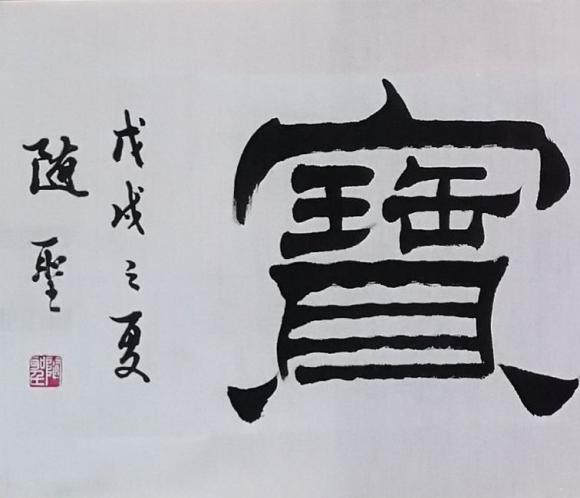 寶
戊戌之夏
随聖